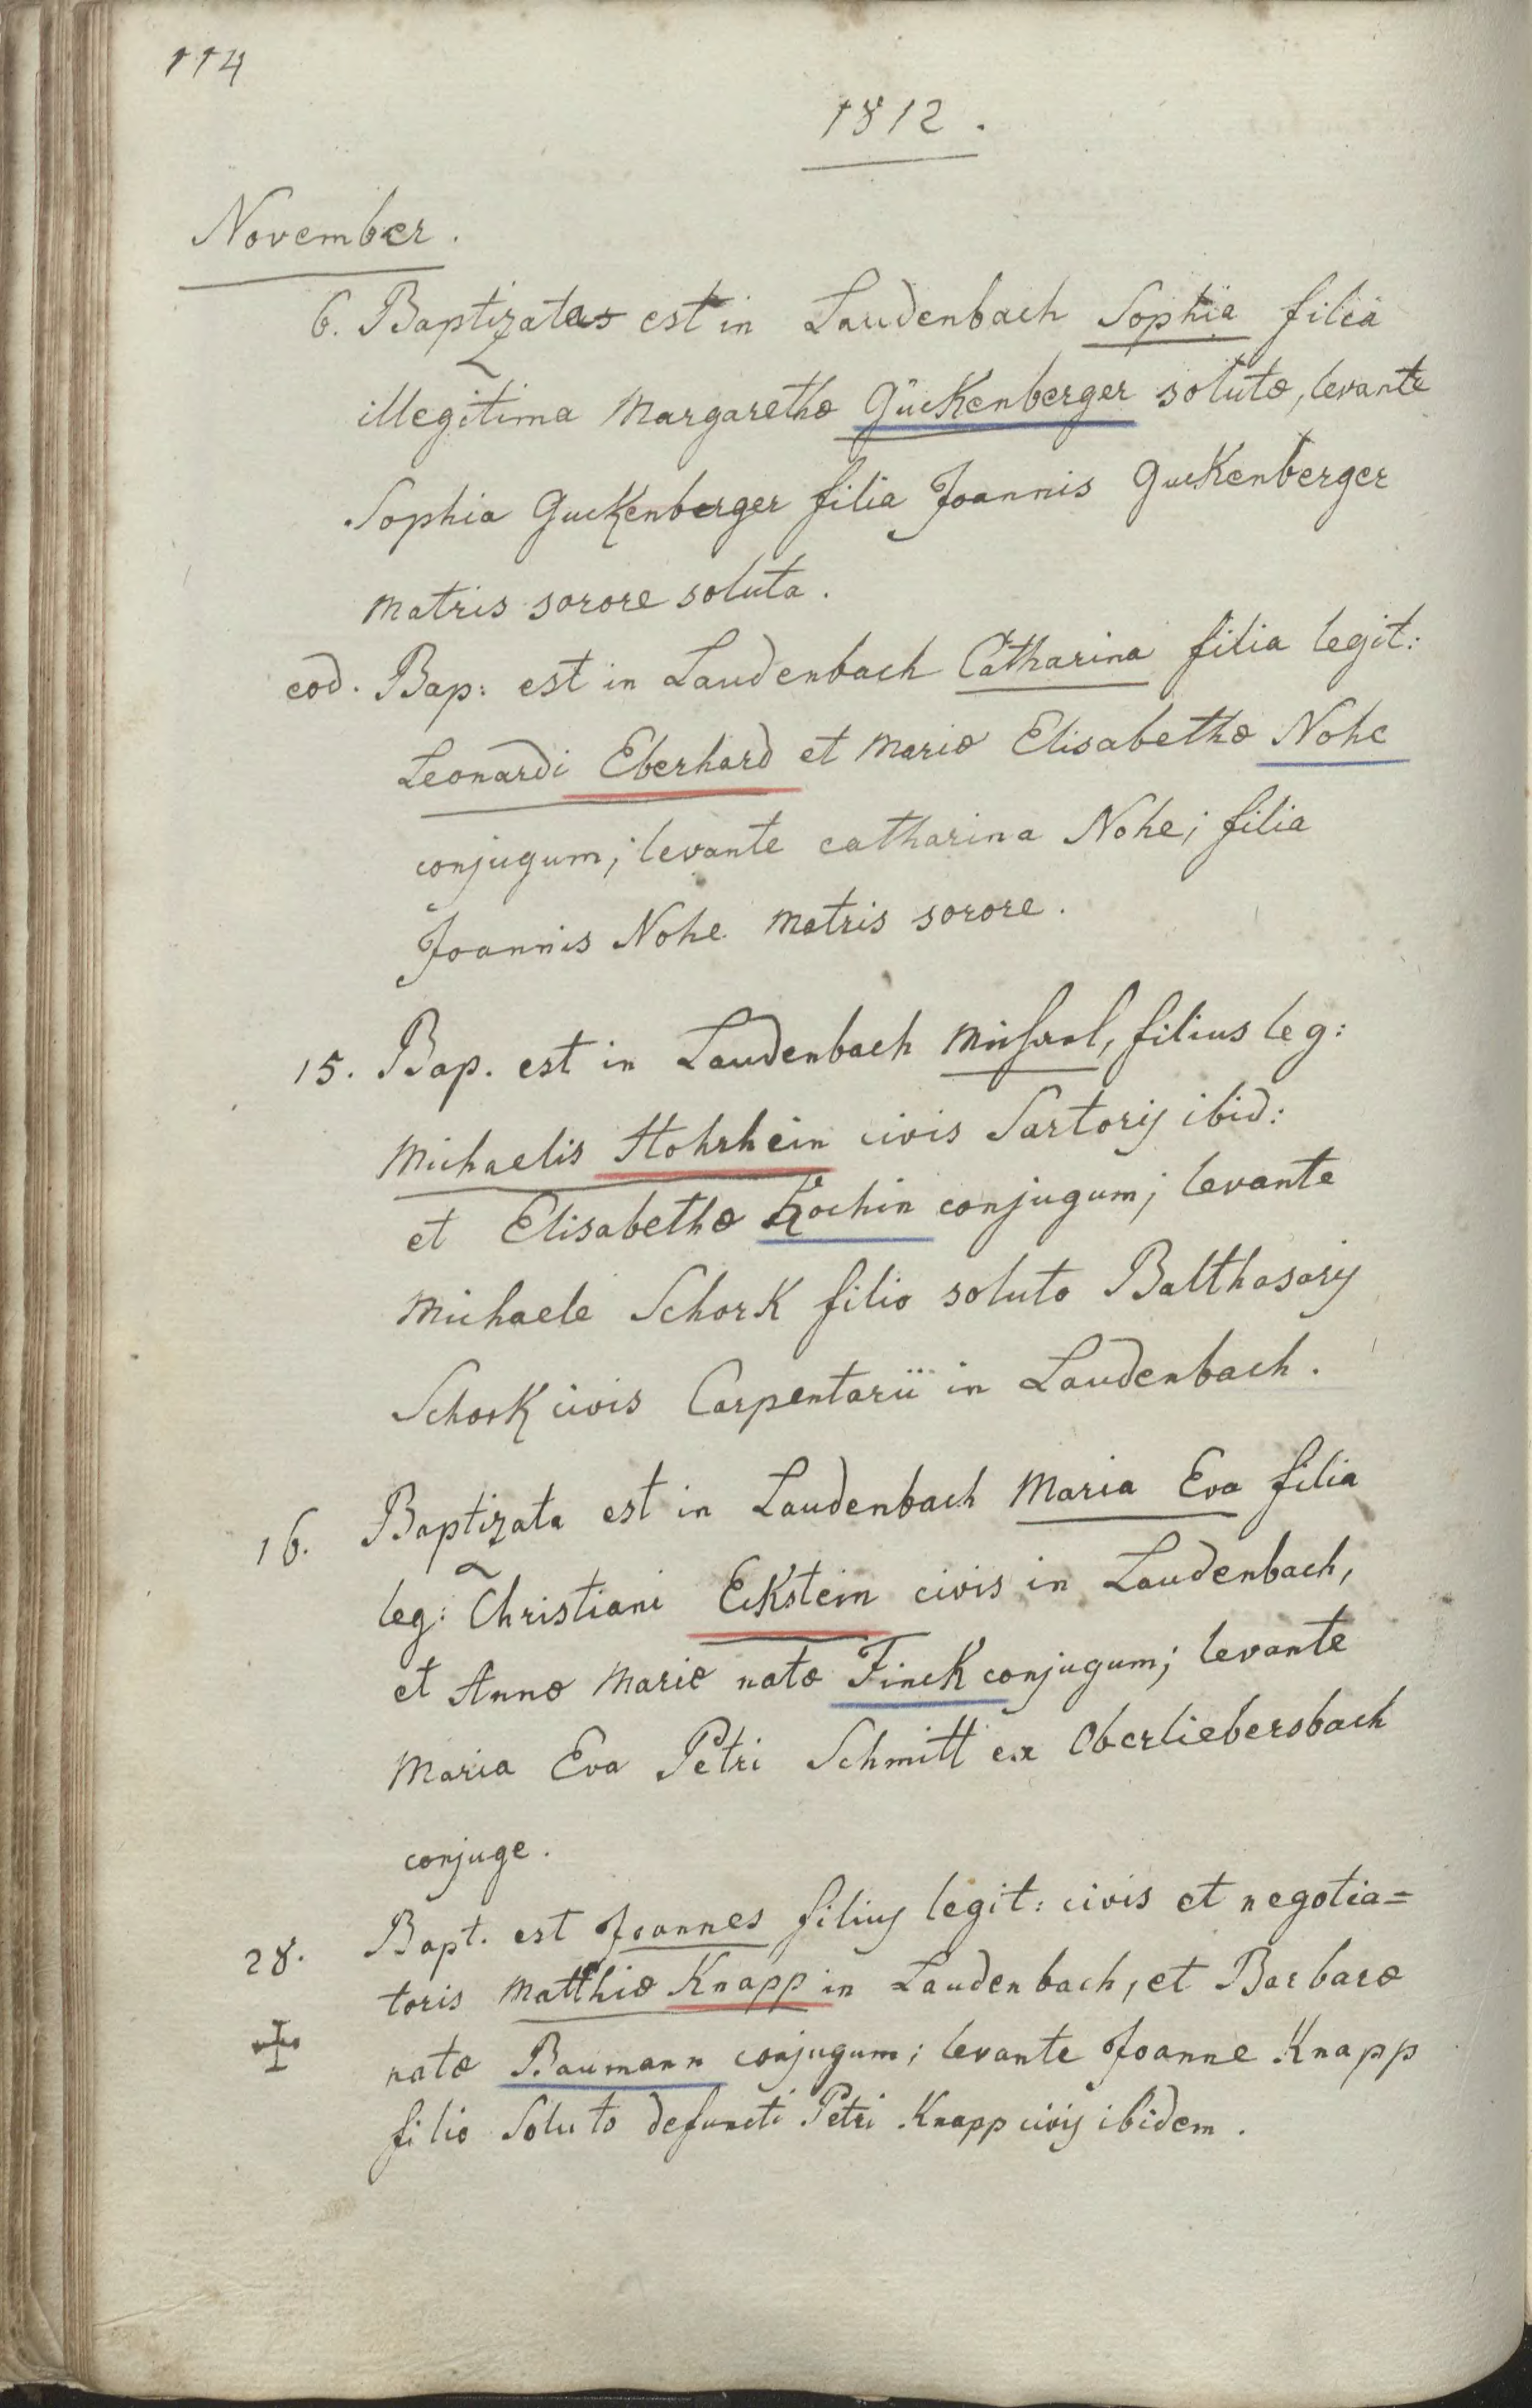 114
1812.
November.
6. Baptizata est in Laudenbach Sophia filia
illegitima Margarethæ Guckenberger solutæ, levante
Sophia Guckenberger filia Joannis Guckenberger
matris sorore soluta.
eod. Bap: est in Laudenbach Catharina filia legit:
Leonardi Eberhard et Mariæ Elisabethæ Nohe
conjugum; levante catharina Nohe; filia
Joannis Nohe matris sorore.
15. Bap. est in Laudenbach Michael, filius leg:
Michaelis Hohrhein civis Sartorij ibid:
et Elisabethæ Kochin conjugum; levante
Michaele Schork filio soluto Balthasarij
Schork civis Carpentarii in Laudenbach.
16. Baptizata est in Laudenbach Maria Eva filia
leg: Christiani Eckstein civis in Laudenbach,
et Annæ Mariæ natæ Finck conjugum; levante
Maria Eva Petri Schmitt ex Oberliebersbach
conjuge.
28. Bapt. est Joannes filius legit: civis et negotia=
toris Matthiæ Knapp in Laudenbach, et Barbaræ
natæ Baumann conjugum; levante Joanne Knapp
filio Soluto defuncti Petri Knapp civis ibidem.